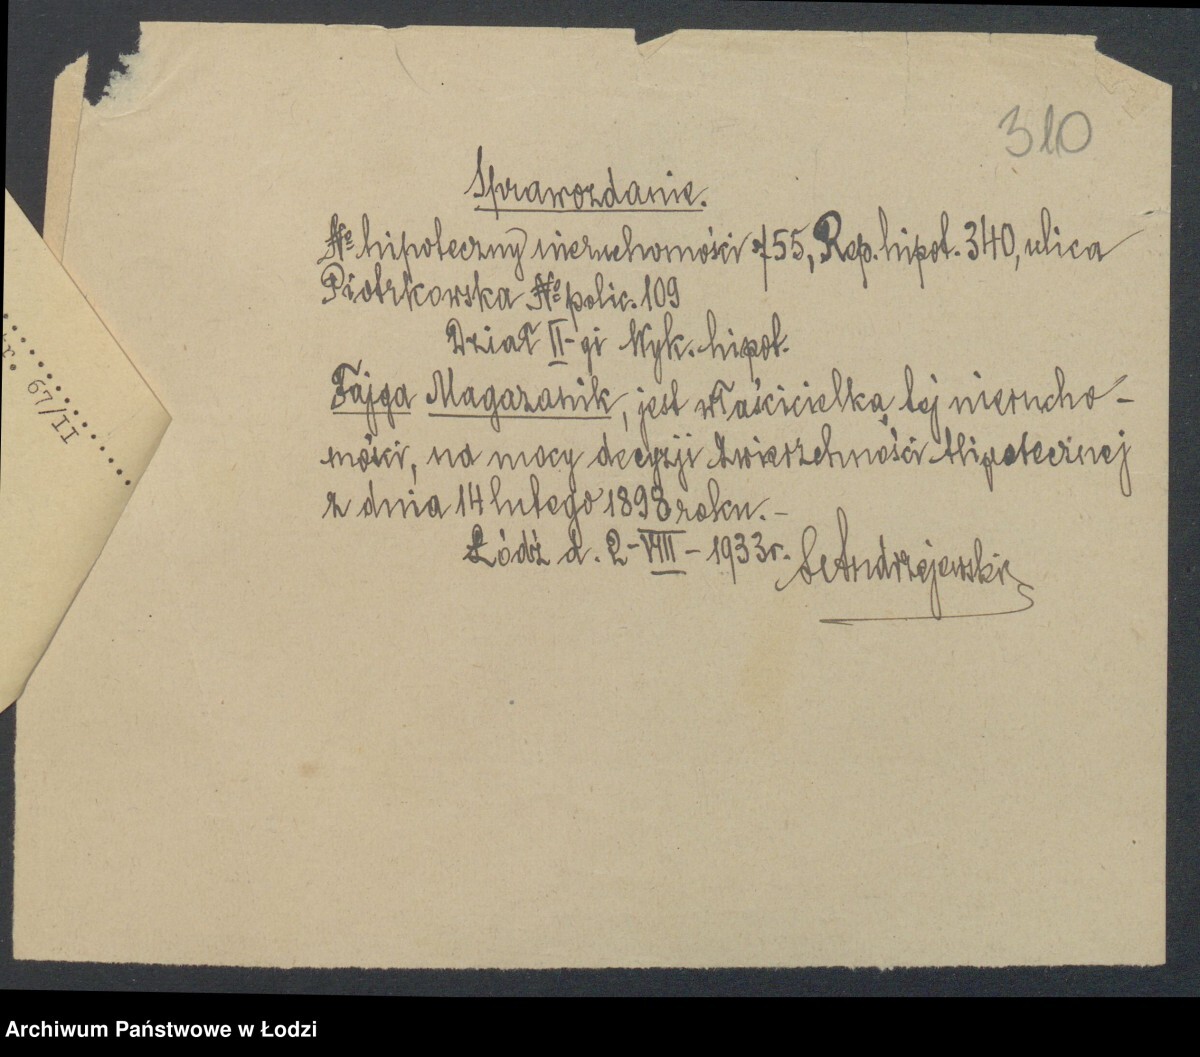 310
Sprawozdanie.
№ hipoteczny nieruchomości 755, Rep. hipot. 340, ulica
Piotrkowska № polic. 109
Dział II-gi Wyk. hipot.
Fajga Magazanik, jest właścicielką tej nierucho-
mości, na mocy decyzji Zwierzchności Hipotecznej
z dnia 14 lutego 1898 roku.-
Łódź d. 2-VIII-1933r. Andrzejewski
r. 67/II
Archiwum Państwowe w Łodzi